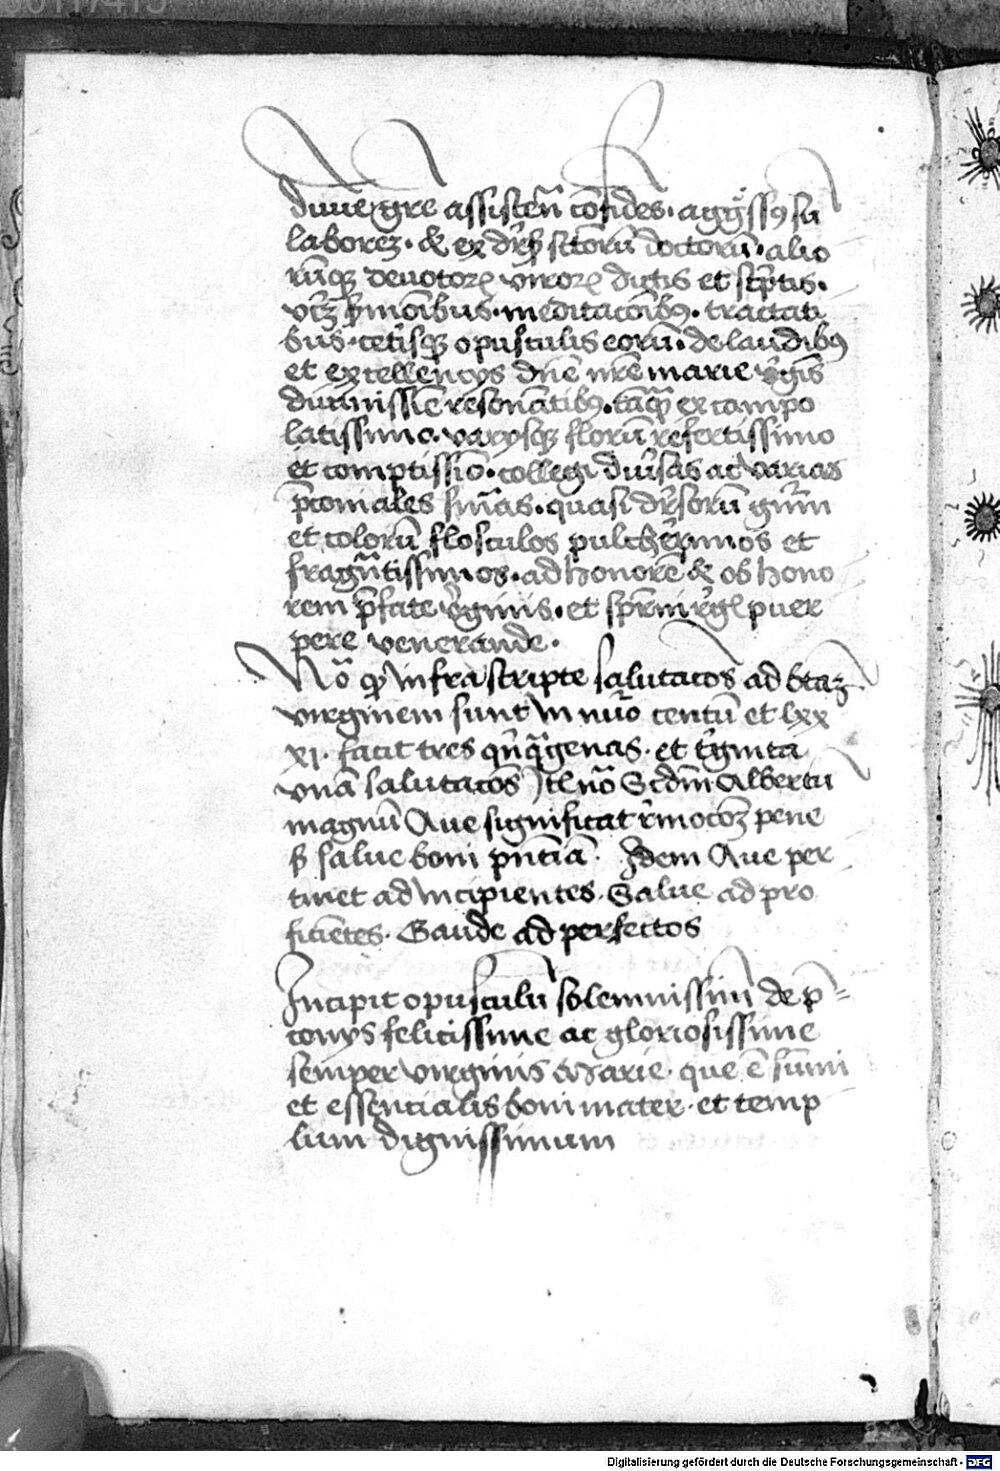 diuine gr̄e assisten̄ cōfides · aggressꝰ su
laborez · & ex diu̾sꝵ sctoru̅ doctoru̅ · alio
ru̅qꝫ deuotoꝝ viroꝝ dictis et sc̾ptis ·
vꝫ s̾monibus · meditac̅oibꝰ · tractati
bus · cet̾isqꝫ opusculis eoru̅ · de laudibꝰ
et excellencijs dn̅e nr̅e marie v̾gi̅s
diuinissi̅e resona̅tibꝰ · ta̅qꝫ ex campo
latissimo · varijsqꝫ floru̅ refertissimo
et comptissi̅o · collegi diu̾sas ac varias
p̅coniales sn̅ias · quasi diu̾soru̅ gn̅m
et coloru̅ flosculos pulcher̾imos et
fragra̅tissimos · ad honore̅ & ob hono
rem p̅fate v̾ginis · et sp̅m v̾gi̅ puer
pere venerande ·
No̅ qꝫ infrascripte salutac̅os ad bt̅aꝫ
virginem sunt in nu̅o centu̅ et lxx
xj · facit tres qu̅q̅genas · et t̾ginta
vna̅ salutac̅os Itē no̅ Scd̅m Albertu̅
magnu̅ Aue significat r̾moc̅oꝫ pene
ꝫ salue boni pn̅cia̅ · Idem Aue per
tinet ad incipientes · Salue ad pro
ficie̅tes · Gaude ad perfectos
Incipit opusculu̅ solemnissimu̅ de p̅=
conijs felicissime ac gloriosissime
semper virginis Marie · que e̅ su̅mi
et essencialis boni mater · et temp
lum dignissimum
Digitalisierung gefördert durch die Deutsche Forschungsgemeinschaft - DFG